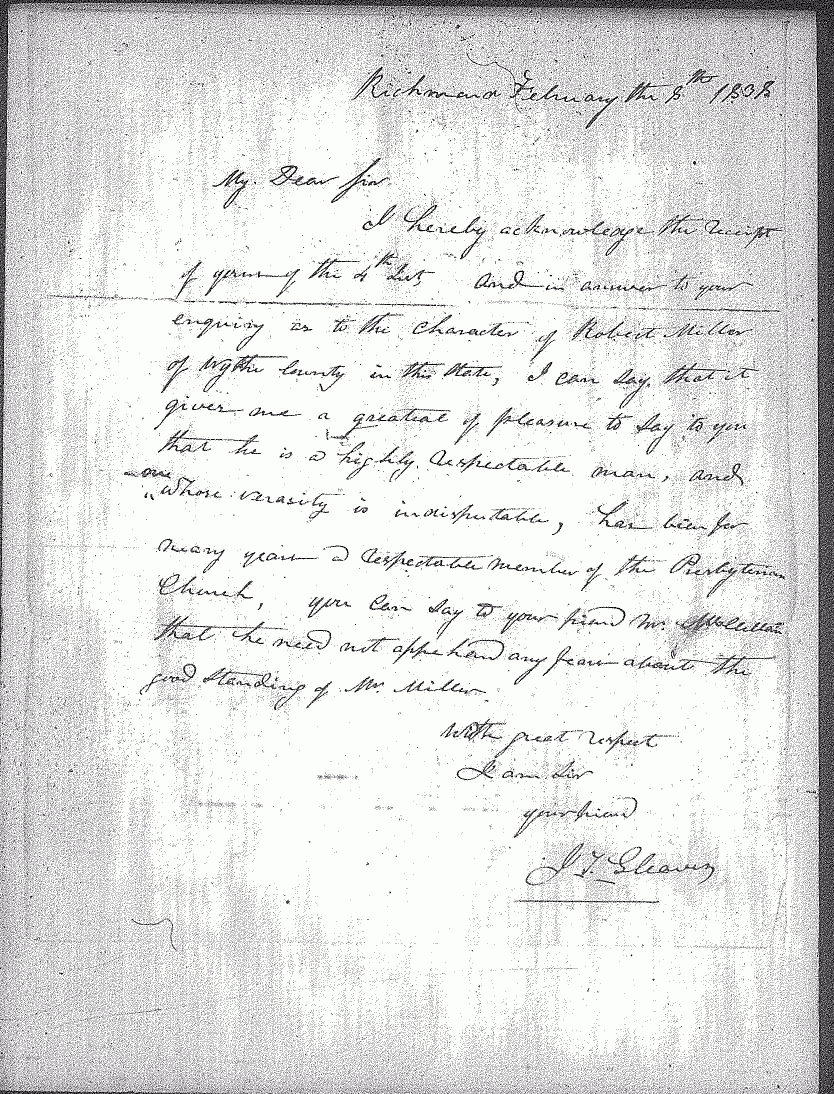 Richmond February the 8th 1838
My Dear Sir
I hereby acknowledge the receipt
of yours of the 4th Inst, and in answer to your
enquiry as to the character of Robert Miller
of Wythe County in this State, I can say that it
gives me a greateal of pleasure to say to you
that he is a highly respectable man, and
one
"whose verasity is indisputable, has been for
many years a respectable member of the Presbyterian
Church, you can say to your friend Mr. McClellan
that he need not appehend any fears about the
good standing of Mr. Miller.
With great respect
I am Sir
your friend
J T Gleaves